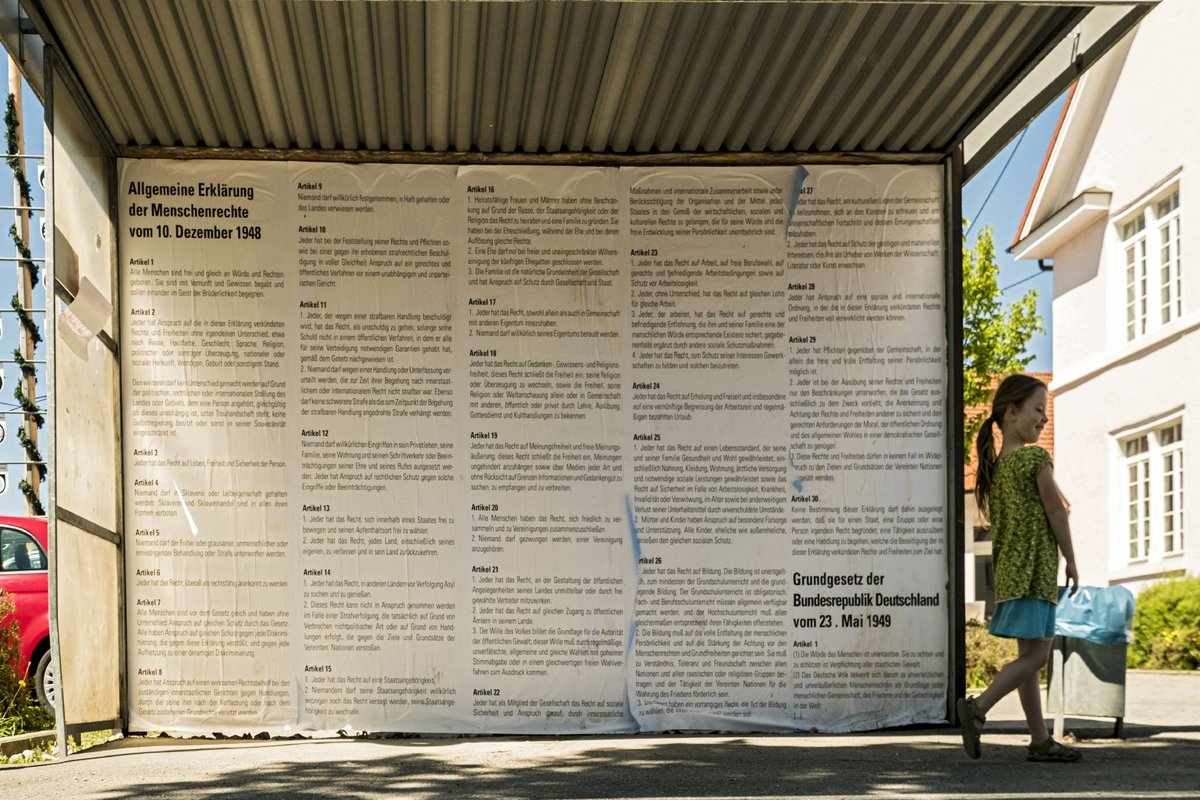 Allgemeine Erklärung
der Menschenrechte
vom 10. Dezember 1948
Artikel 1
Alle Menschen sind frei und gleich an Würde und Rechten
geboren. Sie sind mit Vernunft und Gewissen begabt und
sollen einander im Geist der Brüderlichkeit begegnen.
Artikel 2
Jeder hat Anspruch auf die in dieser Erklärung verkündeten
Rechte und Freiheiten ohne irgendeinen Unterschied, etwa
nach Rasse, Hautfarbe, Geschlecht, Sprache, Religion,
politischer oder sonstiger Überzeugung, nationaler oder
sozialer Herkunft, Vermögen, Geburt oder sonstigem Stand.
Des weiteren darf kein Unterschied gemacht werden auf Grund
der politischen, rechtlichen oder internationalen Stellung des
Landes oder Gebiets, dem eine Person angehört, gleichgültig
ob dieses unabhängig ist, unter Treuhandschaft steht, keine
Selbstregierung besitzt oder sonst in seiner Souveränität
eingeschränkt ist.
Artikel 3
Jeder hat das Recht auf Leben, Freiheit und Sicherheit der Person.
Artikel 4
Niemand darf in Sklaverei oder Leibeigenschaft gehalten
werden; Sklaverei und Sklavenhandel sind in allen ihren
Formen verboten.
Artikel 5
Niemand darf der Folter oder grausamer, unmenschlicher oder
erniedrigender Behandlung oder Strafe unterworfen werden.
Artikel 6
Jeder hat das Recht, überall als rechtsfähig anerkannt zu werden.
Artikel 7
Alle Menschen sind vor dem Gesetz gleich und haben ohne
Unterschied Anspruch auf gleichen Schutz durch das Gesetz.
Alle haben Anspruch auf gleichen Schutz gegen jede Diskrimi-
nierung, die gegen diese Erklärung verstößt, und gegen jede
Aufhetzung zu einer derartigen Diskriminierung.
Artikel 8
Jeder hat Anspruch auf einen wirksamen Rechtsbehelf bei den
zuständigen innerstaatlichen Gerichten gegen Handlungen,
durch die seine ihm nach der Verfassung oder nach dem
Gesetz zustehenden Grundrechte verletzt werden.
Artikel 9
Niemand darf willkürlich festgenommen, in Haft gehalten oder
des Landes verwiesen werden.
Artikel 10
Jeder hat bei der Feststellung seiner Rechte und Pflichten so-
wie bei einer gegen ihn erhobenen strafrechtlichen Beschul-
digung in voller Gleichheit Anspruch auf ein gerechtes und
öffentliches Verfahren vor einem unabhängigen und unpartei-
ischen Gericht.
Artikel 11
1. Jeder, der wegen einer strafbaren Handlung beschuldigt
wird, hat das Recht, als unschuldig zu gelten, solange seine
Schuld nicht in einem öffentlichen Verfahren, in dem er alle
für seine Verteidigung notwendigen Garantien gehabt hat,
gemäß dem Gesetz nachgewiesen ist.
2. Niemand darf wegen einer Handlung oder Unterlassung ver-
urteilt werden, die zur Zeit ihrer Begehung nach innerstaat-
lichem oder internationalem Recht nicht strafbar war. Ebenso
darf keine schwerere Strafe als die zum Zeitpunkt der Begehung
der strafbaren Handlung angedrohte Strafe verhängt werden.
Artikel 12
Niemand darf willkürlichen Eingriffen in sein Privatleben, seine
Familie, seine Wohnung und seinen Schriftverkehr oder Beein-
trächtigungen seiner Ehre und seines Rufes ausgesetzt wer-
den. Jeder hat Anspruch auf rechtlichen Schutz gegen solche
Eingriffe oder Beeinträchtigungen.
Artikel 13
1. Jeder hat das Recht, sich innerhalb eines Staates frei zu
bewegen und seinen Aufenthaltsort frei zu wählen.
2. Jeder hat das Recht, jedes Land, einschließlich seines
eigenen, zu verlassen und in sein Land zurückzukehren.
Artikel 14
1. Jeder hat das Recht, in anderen Ländern vor Verfolgung Asyl
zu suchen und zu genießen.
2. Dieses Recht kann nicht in Anspruch genommen werden
im Falle einer Strafverfolgung, die tatsächlich auf Grund von
Verbrechen nichtpolitischer Art oder auf Grund von Hand-
lungen erfolgt, die gegen die Ziele und Grundsätze der
Vereinten Nationen verstoßen.
Artikel 15
1. Jeder hat das Recht auf eine Staatsangehörigkeit.
2. Niemandem darf seine Staatsangehörigkeit willkürlich
entzogen noch das Recht versagt werden, seine Staatsange-
hörigkeit zu wechseln.
Artikel 16
1. Heiratsfähige Frauen und Männer haben ohne Beschrän-
kung auf Grund der Rasse, der Staatsangehörigkeit oder der
Religion das Recht zu heiraten und eine Familie zu gründen. Sie
haben bei der Eheschließung, während der Ehe und bei deren
Auflösung gleiche Rechte.
2. Eine Ehe darf nur bei freier und uneingeschränkter Willens-
einigung der künftigen Ehegatten geschlossen werden.
3. Die Familie ist die natürliche Grundeinheit der Gesellschaft
und hat Anspruch auf Schutz durch Gesellschaft und Staat.
Artikel 17
1. Jeder hat das Recht, sowohl allein als auch in Gemeinschaft
mit anderen Eigentum innezuhaben.
2. Niemand darf willkürlich seines Eigentums beraubt werden.
Artikel 18
Jeder hat das Recht auf Gedanken-, Gewissens- und Religions-
freiheit; dieses Recht schließt die Freiheit ein, seine Religion
oder Überzeugung zu wechseln, sowie die Freiheit, seine
Religion oder Weltanschauung allein oder in Gemeinschaft
mit anderen, öffentlich oder privat durch Lehre, Ausübung,
Gottesdienst und Kulthandlungen zu bekennen.
Artikel 19
Jeder hat das Recht auf Meinungsfreiheit und freie Meinungs-
äußerung; dieses Recht schließt die Freiheit ein, Meinungen
ungehindert anzuhängen sowie über Medien jeder Art und
ohne Rücksicht auf Grenzen Informationen und Gedankengut zu
suchen, zu empfangen und zu verbreiten.
Artikel 20
1. Alle Menschen haben das Recht, sich friedlich zu ver-
sammeln und zu Vereinigungen zusammenzuschließen.
2. Niemand darf gezwungen werden, einer Vereinigung
anzugehören.
Artikel 21
1. Jeder hat das Recht, an der Gestaltung der öffentlichen
Angelegenheiten seines Landes unmittelbar oder durch frei
gewählte Vertreter mitzuwirken.
2. Jeder hat das Recht auf gleichen Zugang zu öffentlichen
Ämtern in seinem Lande.
3. Der Wille des Volkes bildet die Grundlage für die Autorität
der öffentlichen Gewalt; dieser Wille muß durch regelmäßige,
unverfälschte, allgemeine und gleiche Wahlen mit geheimer
Stimmabgabe oder in einem gleichwertigen freien Wahlver-
fahren zum Ausdruck kommen.
Artikel 22
Jeder hat als Mitglied der Gesellschaft das Recht auf soziale
Sicherheit und Anspruch darauf, durch innerstaatliche
Maßnahmen und internationale Zusammenarbeit sowie unter
Berücksichtigung der Organisation und der Mittel jedes
Staates in den Genuß der wirtschaftlichen, sozialen und
kulturellen Rechte zu gelangen, die für seine Würde und die
freie Entwicklung seiner Persönlichkeit unentbehrlich sind.
Artikel 23
1. Jeder hat das Recht auf Arbeit, auf freie Berufswahl, auf
gerechte und befriedigende Arbeitsbedingungen sowie auf
Schutz vor Arbeitslosigkeit.
2. Jeder, ohne Unterschied, hat das Recht auf gleichen Lohn
für gleiche Arbeit.
3. Jeder, der arbeitet, hat das Recht auf gerechte und
befriedigende Entlohnung, die ihm und seiner Familie eine der
menschlichen Würde entsprechende Existenz sichert, gegebe-
nenfalls ergänzt durch andere soziale Schutzmaßnahmen.
4. Jeder hat das Recht, zum Schutz seiner Interessen Gewerk-
schaften zu bilden und solchen beizutreten.
Artikel 24
Jeder hat das Recht auf Erholung und Freizeit und insbesondere
auf eine vernünftige Begrenzung der Arbeitszeit und regelmä-
ßigen bezahlten Urlaub.
Artikel 25
1. Jeder hat das Recht auf einen Lebensstandard, der seine
und seiner Familie Gesundheit und Wohl gewährleistet, ein-
schließlich Nahrung, Kleidung, Wohnung, ärztliche Versorgung
und notwendige soziale Leistungen gewährleistet sowie das
Recht auf Sicherheit im Falle von Arbeitslosigkeit, Krankheit,
Invalidität oder Verwitwung, im Alter sowie bei anderweitigem
Verlust seiner Unterhaltsmittel durch unverschuldete Umstände.
2. Mütter und Kinder haben Anspruch auf besondere Fürsorge
und Unterstützung. Alle Kinder, eheliche wie außereheliche,
genießen den gleichen sozialen Schutz.
Artikel 26
Jeder hat das Recht auf Bildung. Die Bildung ist unentgelt-
, zum mindesten der Grundschulunterricht und die grund-
legende Bildung. Der Grundschulunterricht ist obligatorisch.
Fach- und Berufsschulunterricht müssen allgemein verfügbar
gemacht werden, und der Hochschulunterricht muß allen
gleichermaßen entsprechend ihren Fähigkeiten offenstehen.
2. Die Bildung muß auf die volle Entfaltung der menschlichen
Persönlichkeit und auf die Stärkung der Achtung vor den
Menschenrechten und Grundfreiheiten gerichtet sein. Sie muß
zu Verständnis, Toleranz und Freundschaft zwischen allen
Nationen und allen rassischen oder religiösen Gruppen bei-
tragen und der Tätigkeit der Vereinten Nationen für die
Wahrung des Friedens förderlich sein.
3. Die Eltern haben ein vorrangiges Recht, die Art der Bildung
zu wählen, die werden soll.
27
der hat das Recht, am kulturellen Leben der Gemeinschaft
teilzunehmen, sich an den Künsten zu erfreuen und am
wissenschaftlichen Fortschritt und dessen Errungenschaften
teilzuhaben.
2. Jeder hat das Recht auf Schutz der geistigen und materiellen
Interessen, die ihm als Urheber von Werken der Wissenschaft,
Literatur oder Kunst erwachsen.
Artikel 28
Jeder hat Anspruch auf eine soziale und internationale
Ordnung, in der die in dieser Erklärung verkündeten Rechte
und Freiheiten voll verwirklicht werden können.
Artikel 29
1. Jeder hat Pflichten gegenüber der Gemeinschaft, in der
allein die freie und volle Entfaltung seiner Persönlichkeit
möglich ist.
2. Jeder ist bei der Ausübung seiner Rechte und Freiheiten
nur den Beschränkungen unterworfen, die das Gesetz aus-
schließlich zu dem Zweck vorsieht, die Anerkennung und
Achtung der Rechte und Freiheiten anderer zu sichern und den
gerechten Anforderungen der Moral, der öffentlichen Ordnung
und des allgemeinen Wohles in einer demokratischen Gesell-
schaft zu genügen.
3. Diese Rechte und Freiheiten dürfen in keinem Fall im Wider-
spruch zu den Zielen und Grundsätzen der Vereinten Nationen
ausgeübt werden.
Artikel 30
Keine Bestimmung dieser Erklärung darf dahin ausgelegt
werden, daß sie für einen Staat, eine Gruppe oder eine
Person irgendein Recht begründet, eine Tätigkeit auszuüben
oder eine Handlung zu begehen, welche die Beseitigung der in
dieser Erklärung verkündeten Rechte und Freiheiten zum Ziel hat.
Grundgesetz der
Bundesrepublik Deutschland
vom 23. Mai 1949
Artikel 1
(1) Die Würde des Menschen ist unantastbar. Sie zu achten und
zu schützen ist Verpflichtung aller staatlichen Gewalt.
(2) Das Deutsche Volk bekennt sich darum zu unverletzlichen
und unveräußerlichen Menschenrechten als Grundlage jeder
menschlichen Gemeinschaft, des Friedens und der Gerechtigkeit
in der Welt.